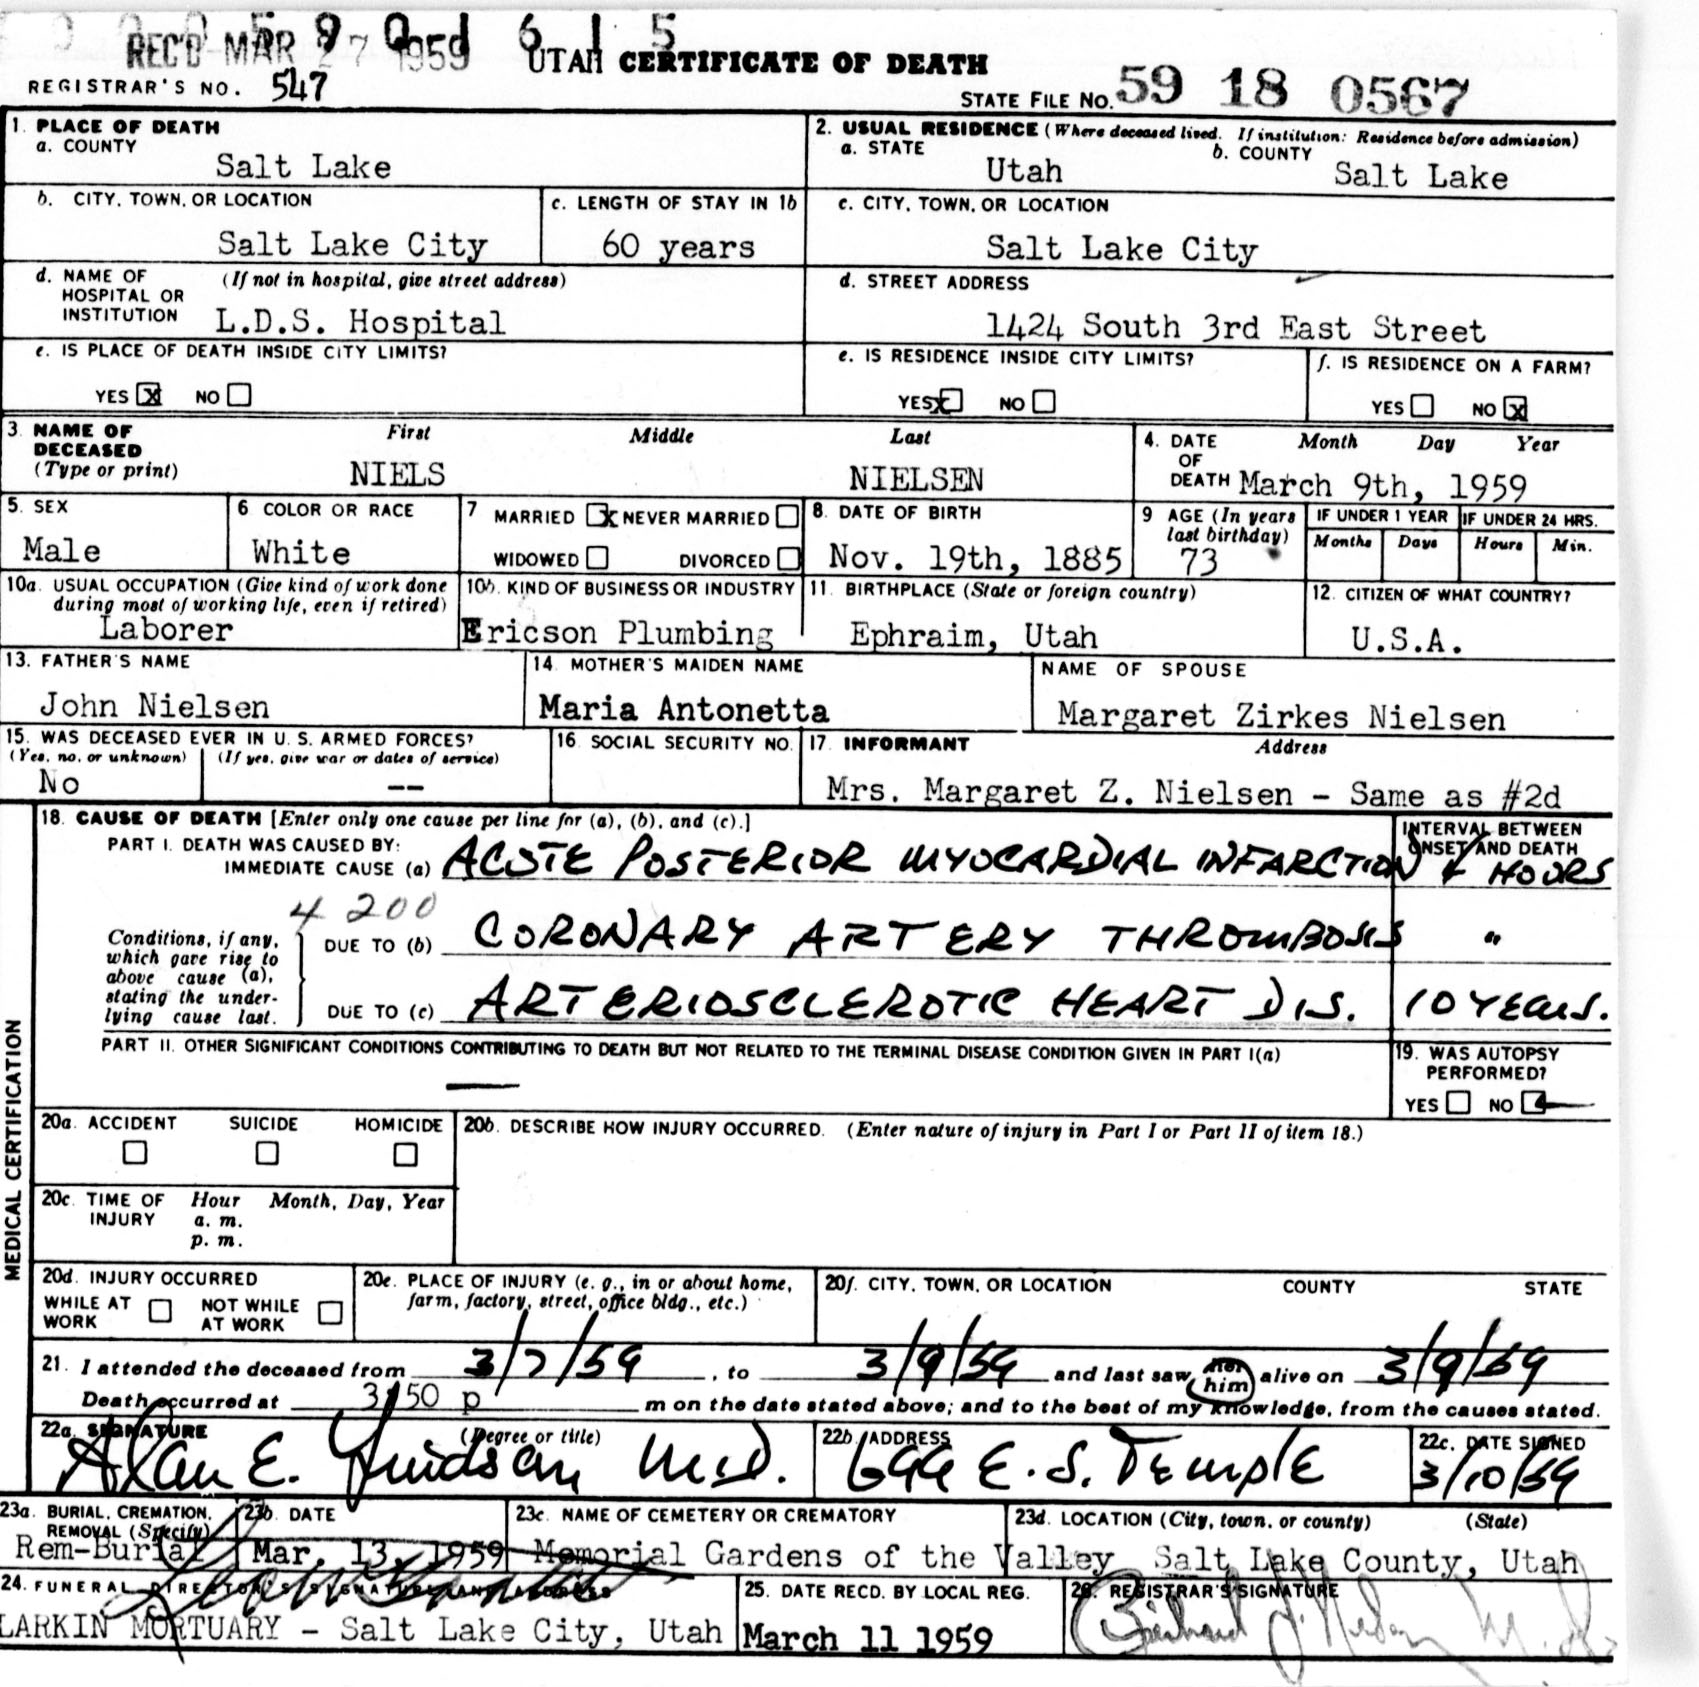 REC'D MAR 27 1959
UTAH CERTIFICATE OF DEATH
REGISTRAR'S NO. 547
STATE FILE NO. 59 18 0567
1. PLACE OF DEATH
a. COUNTY
Salt Lake
2. USUAL RESIDENCE (Where deceased lived. If institution: Residence before admission)
a. STATE b. COUNTY
Utah Salt Lake
b. CITY, TOWN, OR LOCATION
Salt Lake City
c. LENGTH OF STAY IN 1b
60 years
c. CITY, TOWN, OR LOCATION
Salt Lake City
d. NAME OF HOSPITAL OR INSTITUTION (If not in hospital, give street address)
L.D.S. Hospital
d. STREET ADDRESS
1424 South 3rd East Street
e. IS PLACE OF DEATH INSIDE CITY LIMITS?
YES X NO
e. IS RESIDENCE INSIDE CITY LIMITS?
YES X NO
f. IS RESIDENCE ON A FARM?
YES NO X
3. NAME OF DECEASED (Type or print)
First Middle Last
NIELS NIELSEN
4. DATE OF DEATH
Month Day Year
March 9th, 1959
5. SEX
Male
6 COLOR OR RACE
White
7 MARRIED X NEVER MARRIED
WIDOWED DIVORCED
8. DATE OF BIRTH
Nov. 19th, 1885
9 AGE (In years last birthday)
73
IF UNDER 1 YEAR
Months Days
IF UNDER 24 HRS.
Hours Min.
10a. USUAL OCCUPATION (Give kind of work done during most of working life, even if retired)
Laborer
10b. KIND OF BUSINESS OR INDUSTRY
Ericson Plumbing
11. BIRTHPLACE (State or foreign country)
Ephraim, Utah
12. CITIZEN OF WHAT COUNTRY?
U.S.A.
13. FATHER'S NAME
John Nielsen
14. MOTHER'S MAIDEN NAME
Maria Antonetta
NAME OF SPOUSE
Margaret Zirkes Nielsen
15. WAS DECEASED EVER IN U. S. ARMED FORCES?
(Yes, no, or unknown) (If yes, give war or dates of service)
No --
16. SOCIAL SECURITY NO.
17. INFORMANT Address
Mrs. Margaret Z. Nielsen - Same as #2d
MEDICAL CERTIFICATION
18. CAUSE OF DEATH [Enter only one cause per line for (a), (b), and (c).]
INTERVAL BETWEEN ONSET AND DEATH
PART I. DEATH WAS CAUSED BY:
IMMEDIATE CAUSE (a) ACUTE POSTERIOR MYOCARDIAL INFARCTION HOURS
4 200
Conditions, if any, which gave rise to above cause (a), stating the underlying cause last.
DUE TO (b) CORONARY ARTERY THROMBOSIS "
DUE TO (c) ARTERIOSCLEROTIC HEART DIS. 10 YEARS.
PART II. OTHER SIGNIFICANT CONDITIONS CONTRIBUTING TO DEATH BUT NOT RELATED TO THE TERMINAL DISEASE CONDITION GIVEN IN PART I(a)
—
19. WAS AUTOPSY PERFORMED?
YES NO
20a. ACCIDENT SUICIDE HOMICIDE
20b. DESCRIBE HOW INJURY OCCURRED. (Enter nature of injury in Part I or Part II of item 18.)
20c. TIME OF INJURY Hour Month, Day, Year
a. m.
p. m.
20d. INJURY OCCURRED
WHILE AT WORK NOT WHILE AT WORK
20e. PLACE OF INJURY (e. g., in or about home, farm, factory, street, office bldg., etc.)
20f. CITY, TOWN, OR LOCATION COUNTY STATE
21. I attended the deceased from 3/7/59, to 3/9/59 and last saw her him alive on 3/9/59
Death occurred at 3:50 p m on the date stated above; and to the best of my knowledge, from the causes stated.
22a. SIGNATURE (Degree or title)
Alan E. M.D.
22b. ADDRESS
699 E. S. TEMPLE
22c. DATE SIGNED
3/10/59
23a. BURIAL, CREMATION, REMOVAL (Specify)
Rem-Burial
23b. DATE
Mar. 13, 1959
23c. NAME OF CEMETERY OR CREMATORY
Memorial Gardens of the Valley
23d. LOCATION (City, town, or county) (State)
Salt Lake County, Utah
24. FUNERAL DIRECTOR'S SIGNATURE AND ADDRESS
LARKIN MORTUARY - Salt Lake City, Utah
25. DATE RECD. BY LOCAL REG.
March 11 1959
26. REGISTRAR'S SIGNATURE